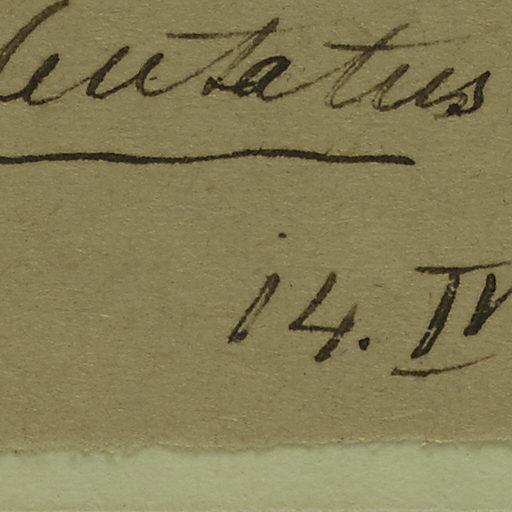 dentatus
14. IV